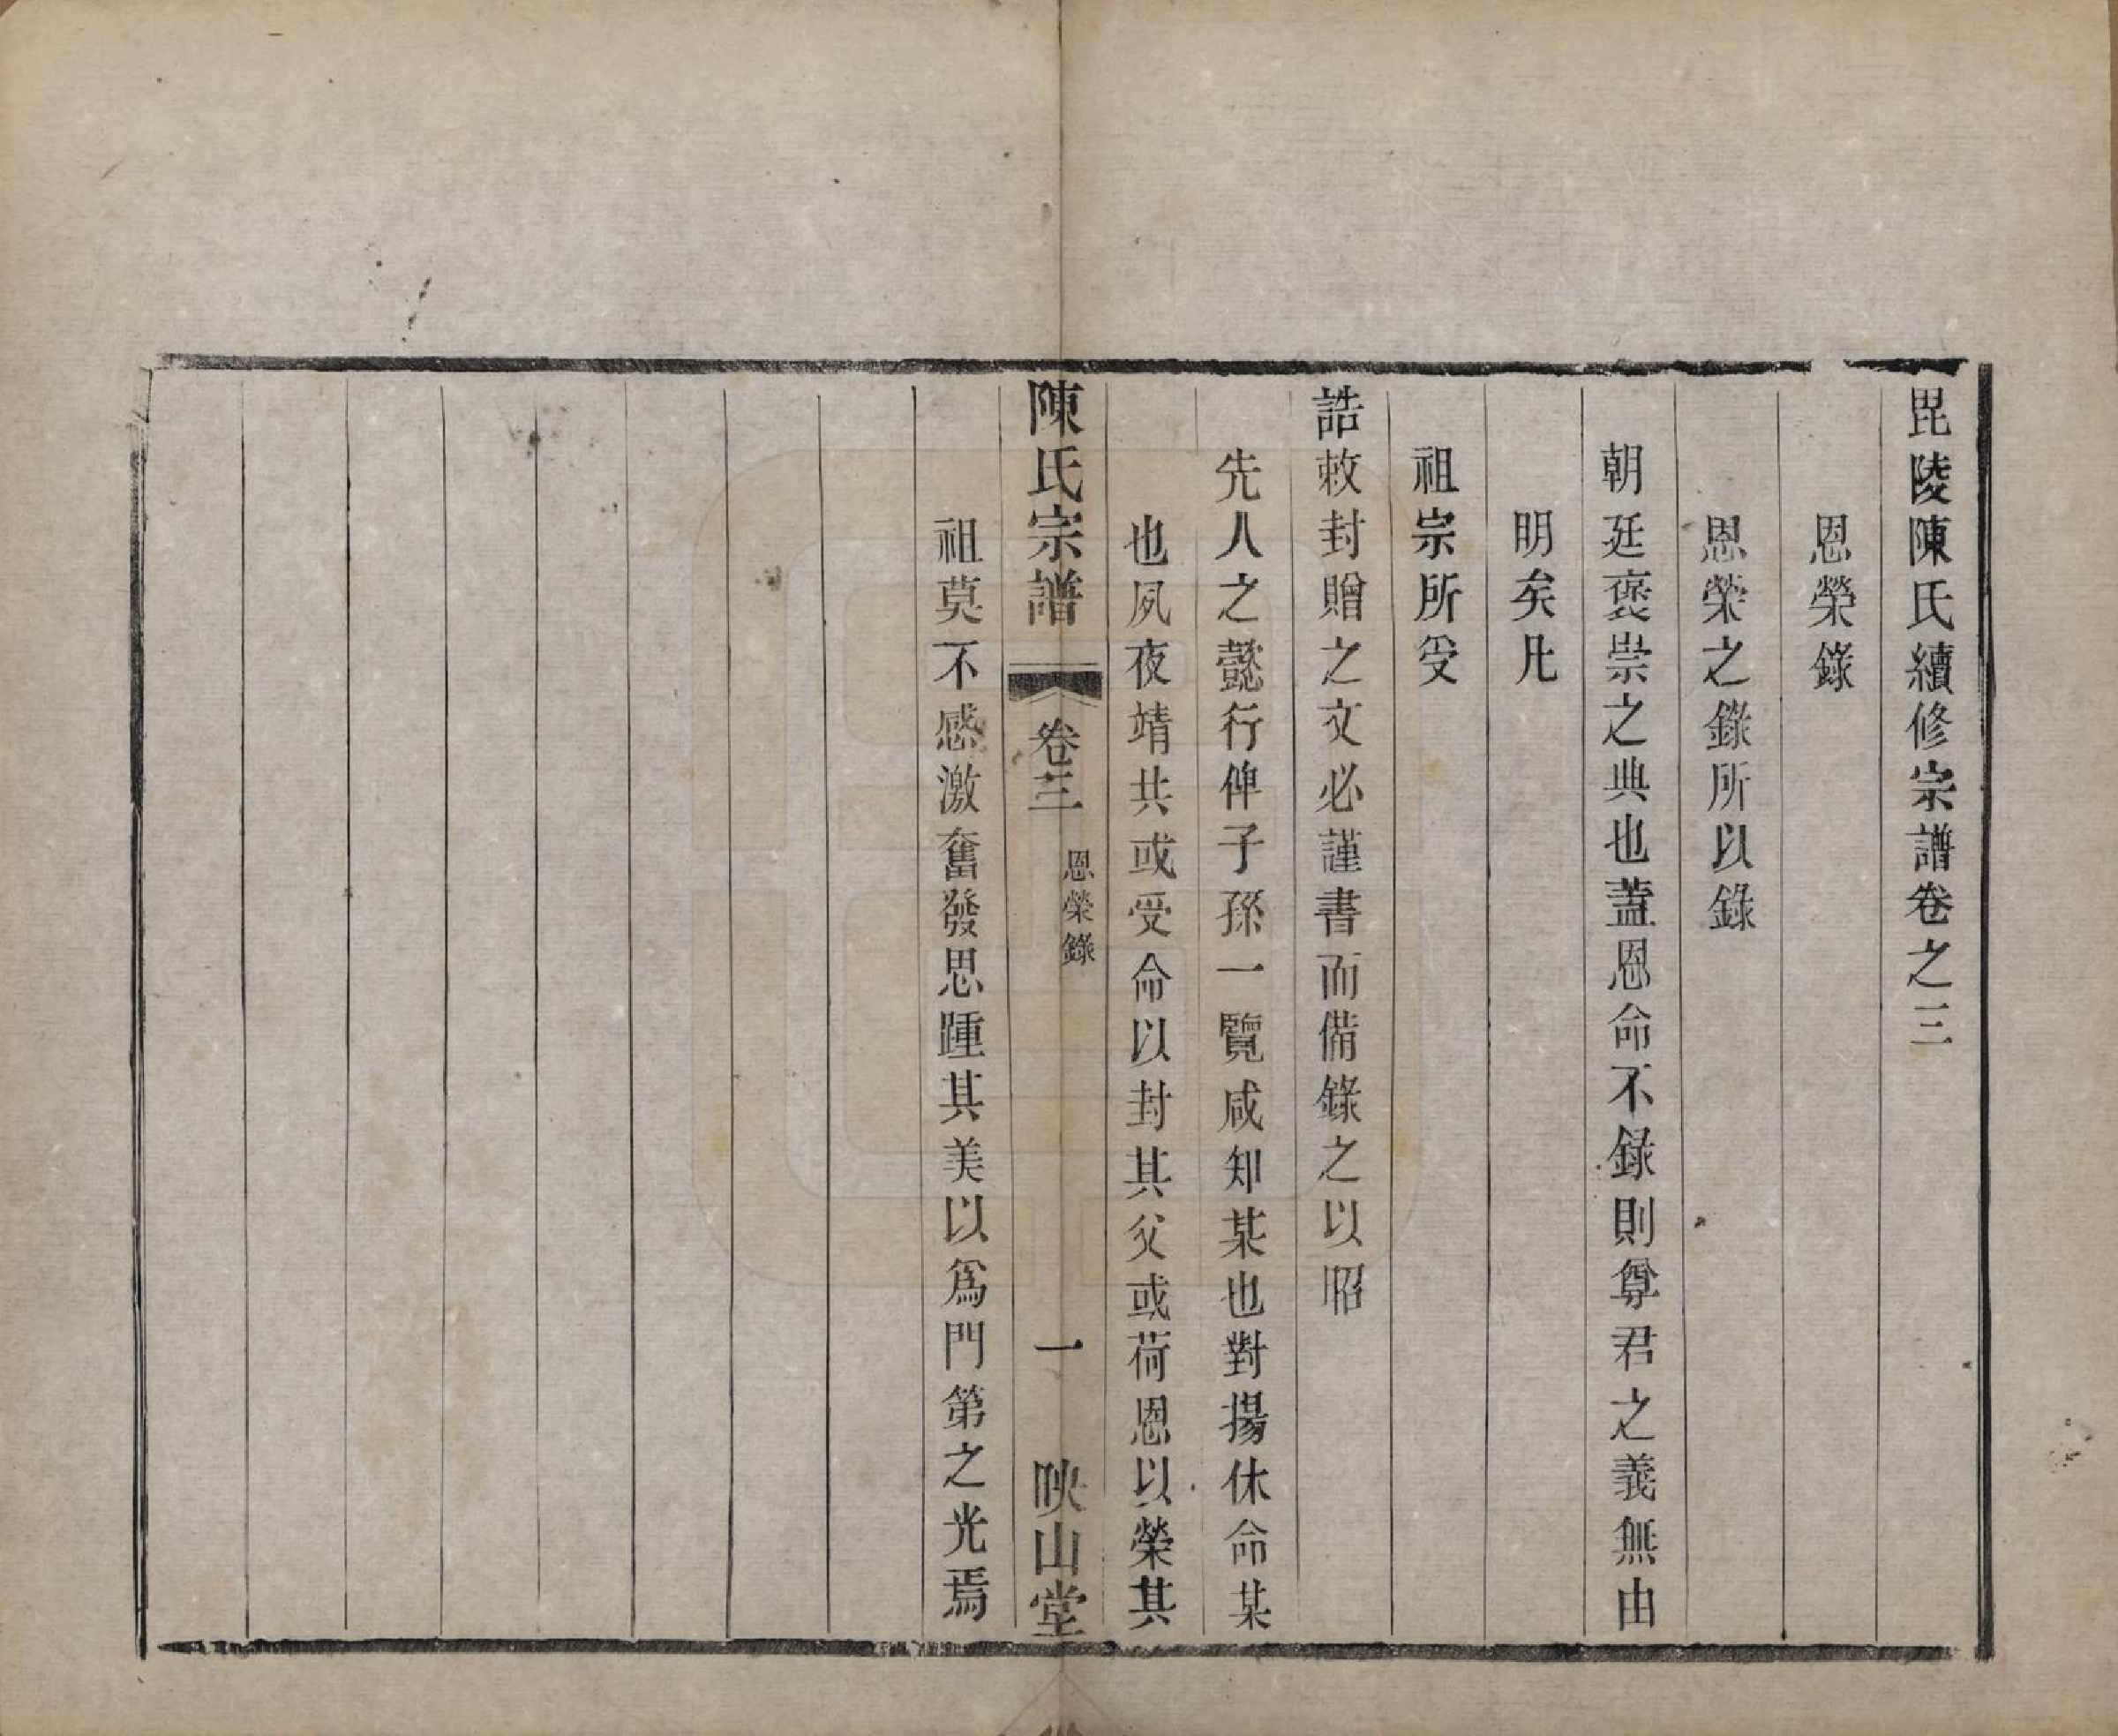 毘陵陳氏續修宗譜卷之三
恩榮錄
恩榮之錄所以錄
朝廷褒崇之典也蓋恩命不錄則尊君之義無由
明矣凡
祖宗所受
誥敕封贈之文必謹書而備錄之以昭
先人之懿行俾子孫一覽咸知某也對揚休命某
也夙夜靖共或受命以封其父或荷恩以榮其
陳氏宗譜
卷三
恩榮錄
一
映山堂
祖莫不感激奮發思踵其美以爲門第之光焉